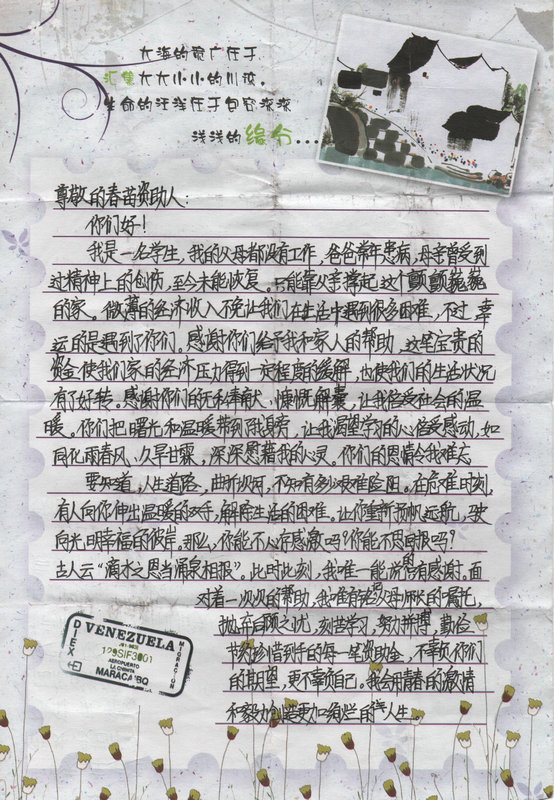 大海的宽广在于
汇集大大小小的川流。
生命的汪洋在于包容深深
浅浅的缘分...
尊敬的春苗资助人：
你们好！
我是一名学生，我的父母都没有工作，爸爸常年患病，母亲曾受到
过精神上的创伤，至今未能恢复。只能靠父亲撑起这个颤颤巍巍
的家。微薄的经济收入不免让我们在生活中遇到很多困难，不过，幸
运的是遇到了你们。感谢你们给予我和家人的帮助，这笔宝贵的
资金使我们家的经济压力得到一定程度的缓解，也使我们的生活状况
有了好转。感谢你们的无私奉献、慷慨解囊，让我倍受社会的温
暖。你们把曙光和温暖带到了我身旁，让我渴望学习的心倍受感动，如
同化雨春风、久旱甘露，深深慰藉我的心灵。你们的恩情令我难忘
要知道，人生道路，曲折坎坷，不知有多少艰难险阻。在危难时刻，
有人向你伸出温暖的双手，解除生活的困难。让你重新扬帆远航，驶
向光明幸福的彼岸。那么，你能不心存感激吗？你能不思回报吗？
古人云“滴水之恩当涌泉相报”。此时此刻，我唯一能说的有感谢。面
对着一次次的帮助，我唯有老父母师长的嘱托，
抛弃自顾之忧，刻苦学习，努力拼搏，勤俭
节约珍惜到手的每一笔资助金，不辜负你们
的期望，更不辜负自己。我会用青春的激情
和毅力创造更加绚烂的人生。
VENEZUELA
DIEX
MIGRACION
129SIF3001
AEROPUERTO
LA CHINITA
MARACAIBO